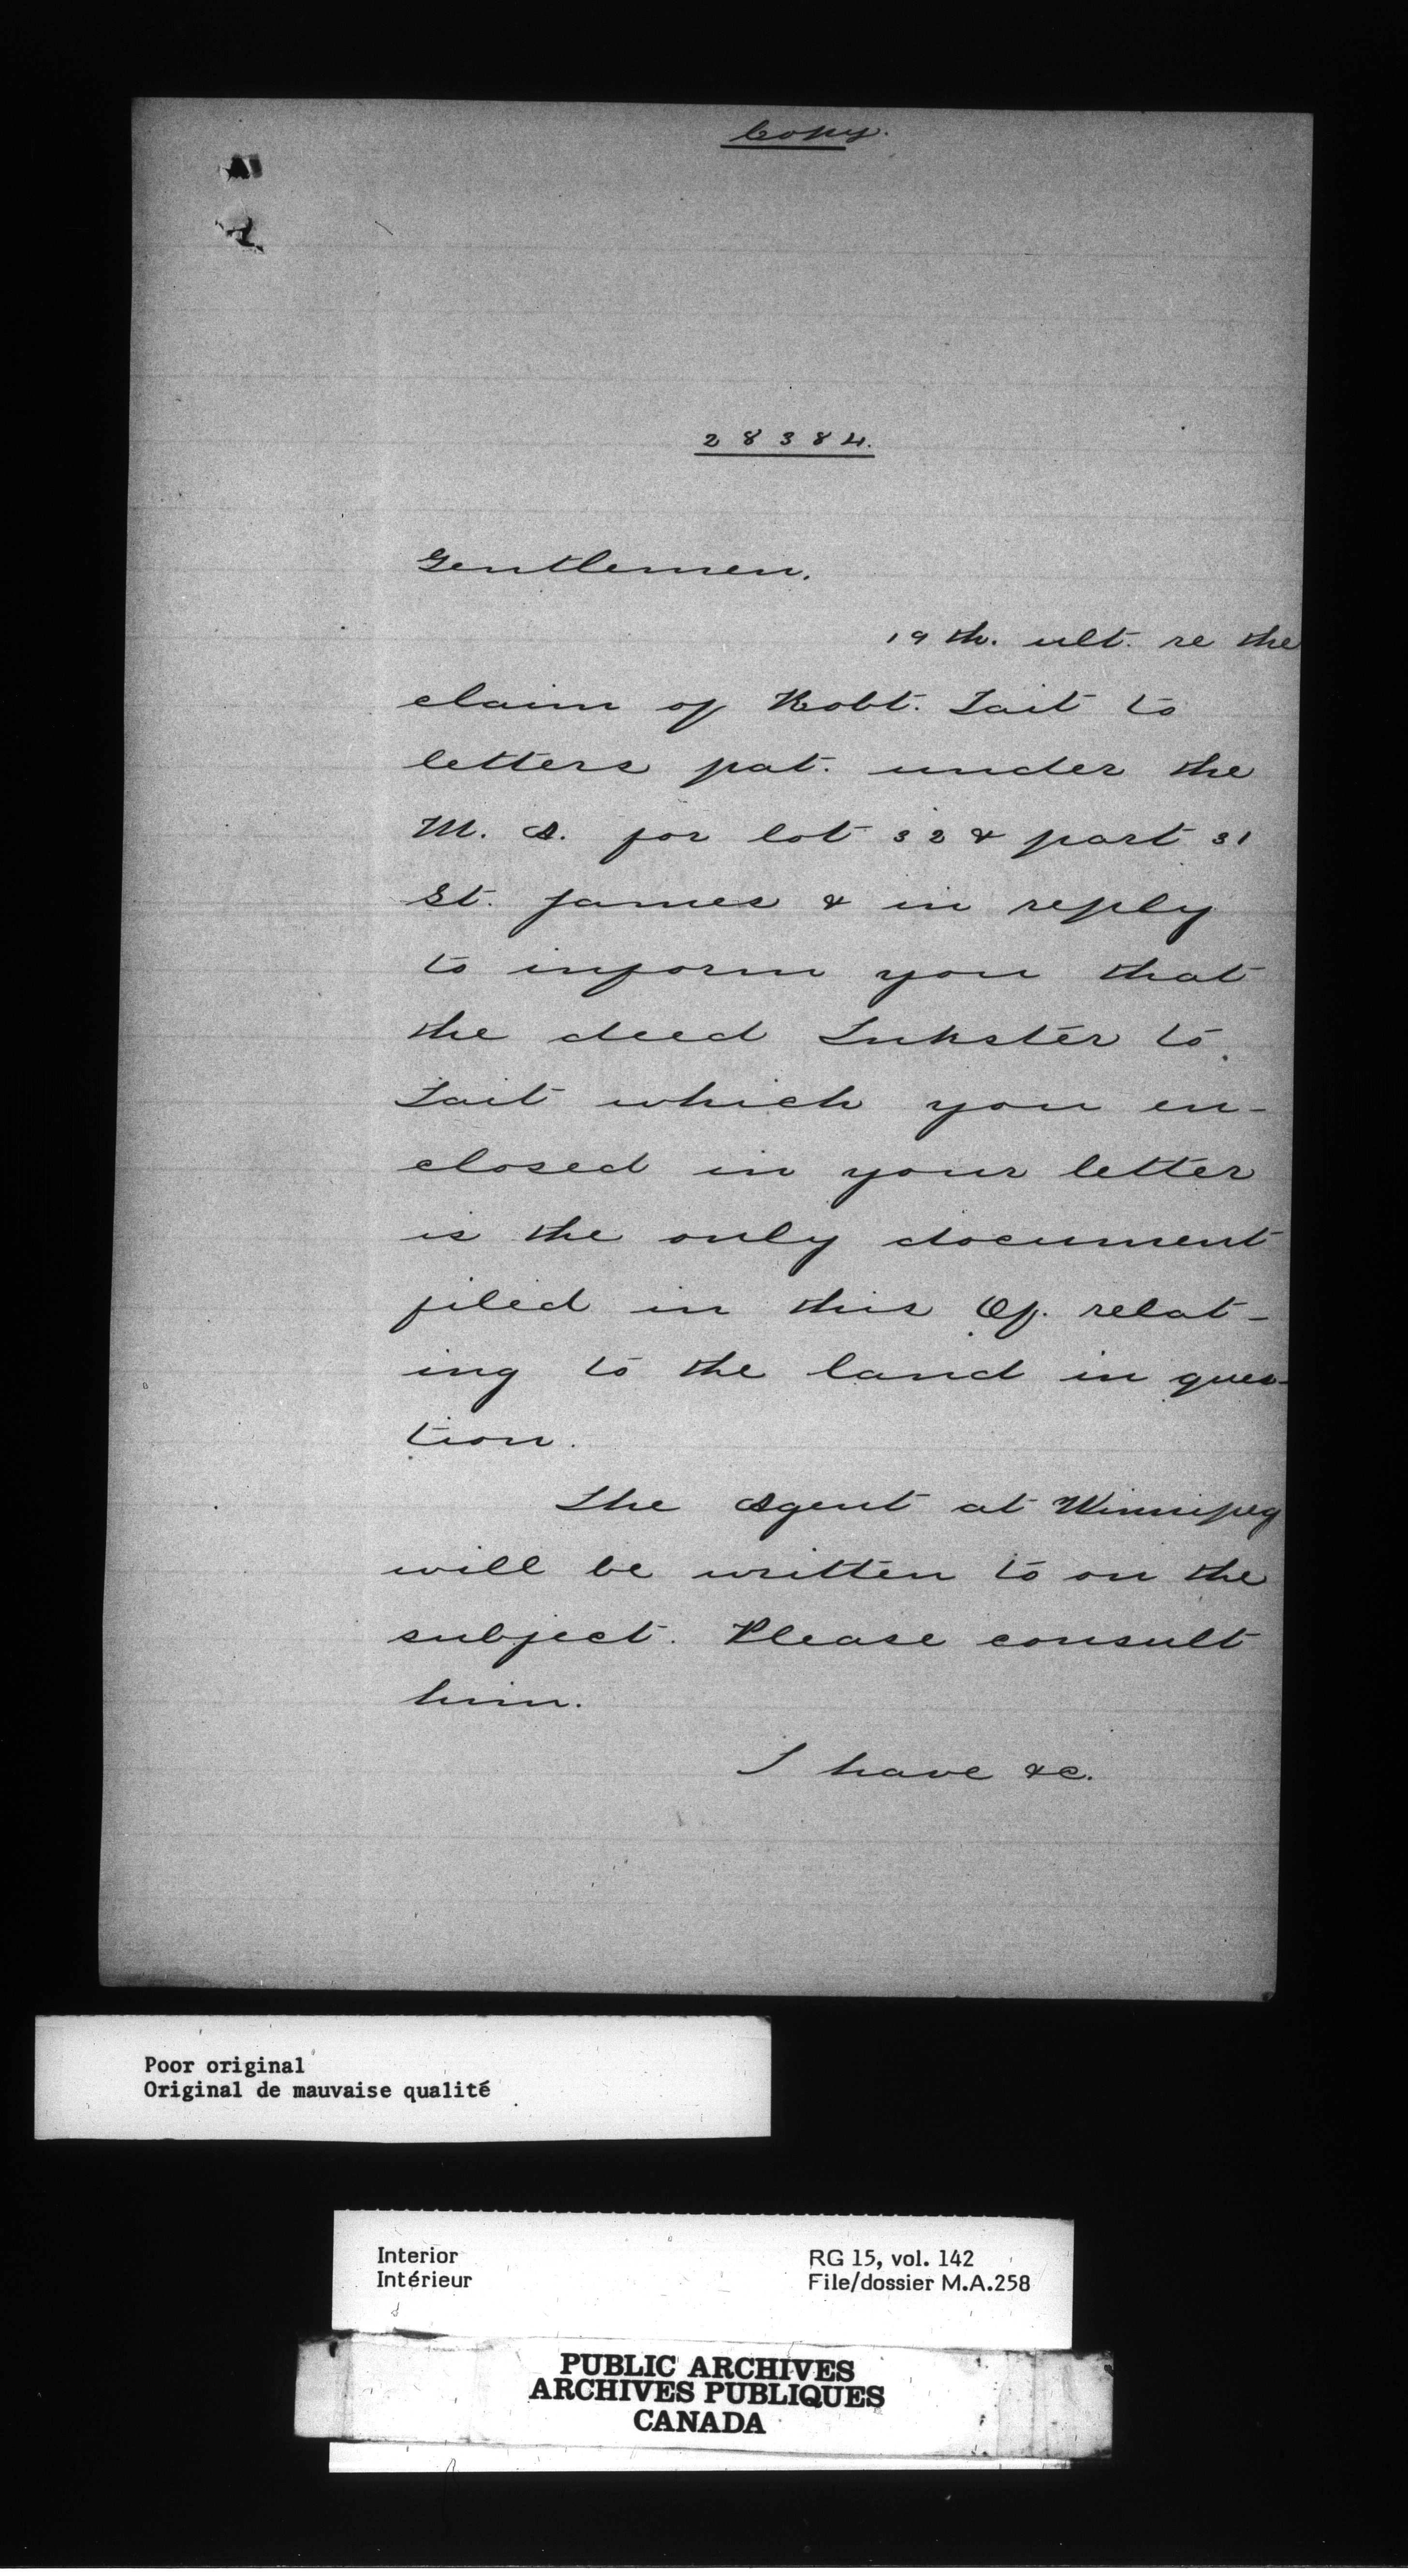 Copy.
28384.
Gentlemen.
19th. ult. re the
claim of Robt. Tait to
letters pat. under the
M. A. for lot 32 & part 31
St. James & in reply
to inform you that
the deed Inkster to
Tait which you en-
closed in your letter
is the only document
filed in this Of. relat-
ing to the land in ques-
tion.
The Agent at Winnipeg
will be written to on the
subject. Please consult
him.
I have &c.
Poor original
Original de mauvaise qualité
Interior
Intérieur
RG 15, vol. 142
File/dossier M.A.258
PUBLIC ARCHIVES
ARCHIVES PUBLIQUES
CANADA